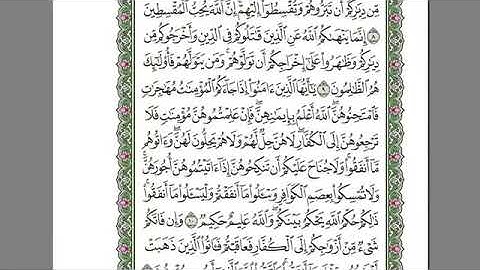 مِّن دِيَٰرِكُمۡ أَن تَبَرُّوهُمۡ وَتُقۡسِطُوٓاْ إِلَيۡهِمۡۚ إِنَّ ٱللَّهَ يُحِبُّ ٱلۡمُقۡسِطِينَ
٨ إِنَّمَا يَنۡهَىٰكُمُ ٱللَّهُ عَنِ ٱلَّذِينَ قَٰتَلُوكُمۡ فِي ٱلدِّينِ وَأَخۡرَجُوكُم مِّن
دِيَٰرِكُمۡ وَظَٰهَرُواْ عَلَىٰٓ إِخۡرَاجِكُمۡ أَن تَوَلَّوۡهُمۡۚ وَمَن يَتَوَلَّهُمۡ فَأُوْلَٰٓئِكَ
هُمُ ٱلظَّٰلِمُونَ ٩ يَٰٓأَيُّهَا ٱلَّذِينَ ءَامَنُوٓاْ إِذَا جَآءَكُمُ ٱلۡمُؤۡمِنَٰتُ مُهَٰجِرَٰتٖ
فَٱمۡتَحِنُوهُنَّۖ ٱللَّهُ أَعۡلَمُ بِإِيمَٰنِهِنَّۖ فَإِنۡ عَلِمۡتُمُوهُنَّ مُؤۡمِنَٰتٖ فَلَا
تَرۡجِعُوهُنَّ إِلَى ٱلۡكُفَّارِۖ لَا هُنَّ حِلّٞ لَّهُمۡ وَلَا هُمۡ يَحِلُّونَ لَهُنَّۖ وَءَاتُوهُم
مَّآ أَنفَقُواْۚ وَلَا جُنَاحَ عَلَيۡكُمۡ أَن تَنكِحُوهُنَّ إِذَآ ءَاتَيۡتُمُوهُنَّ أُجُورَهُنَّۚ
وَلَا تُمۡسِكُواْ بِعِصَمِ ٱلۡكَوَافِرِ وَسۡـَٔلُواْ مَآ أَنفَقۡتُمۡ وَلۡيَسۡـَٔلُواْ مَآ أَنفَقُواْۚ
ذَٰلِكُمۡ حُكۡمُ ٱللَّهِ يَحۡكُمُ بَيۡنَكُمۡۖ وَٱللَّهُ عَلِيمٌ حَكِيمٞ ١٠ وَإِن فَاتَكُمۡ
شَيۡءٞ مِّنۡ أَزۡوَٰجِكُمۡ إِلَى ٱلۡكُفَّارِ فَعَاقَبۡتُمۡ فَـَٔاتُواْ ٱلَّذِينَ ذَهَبَتۡ